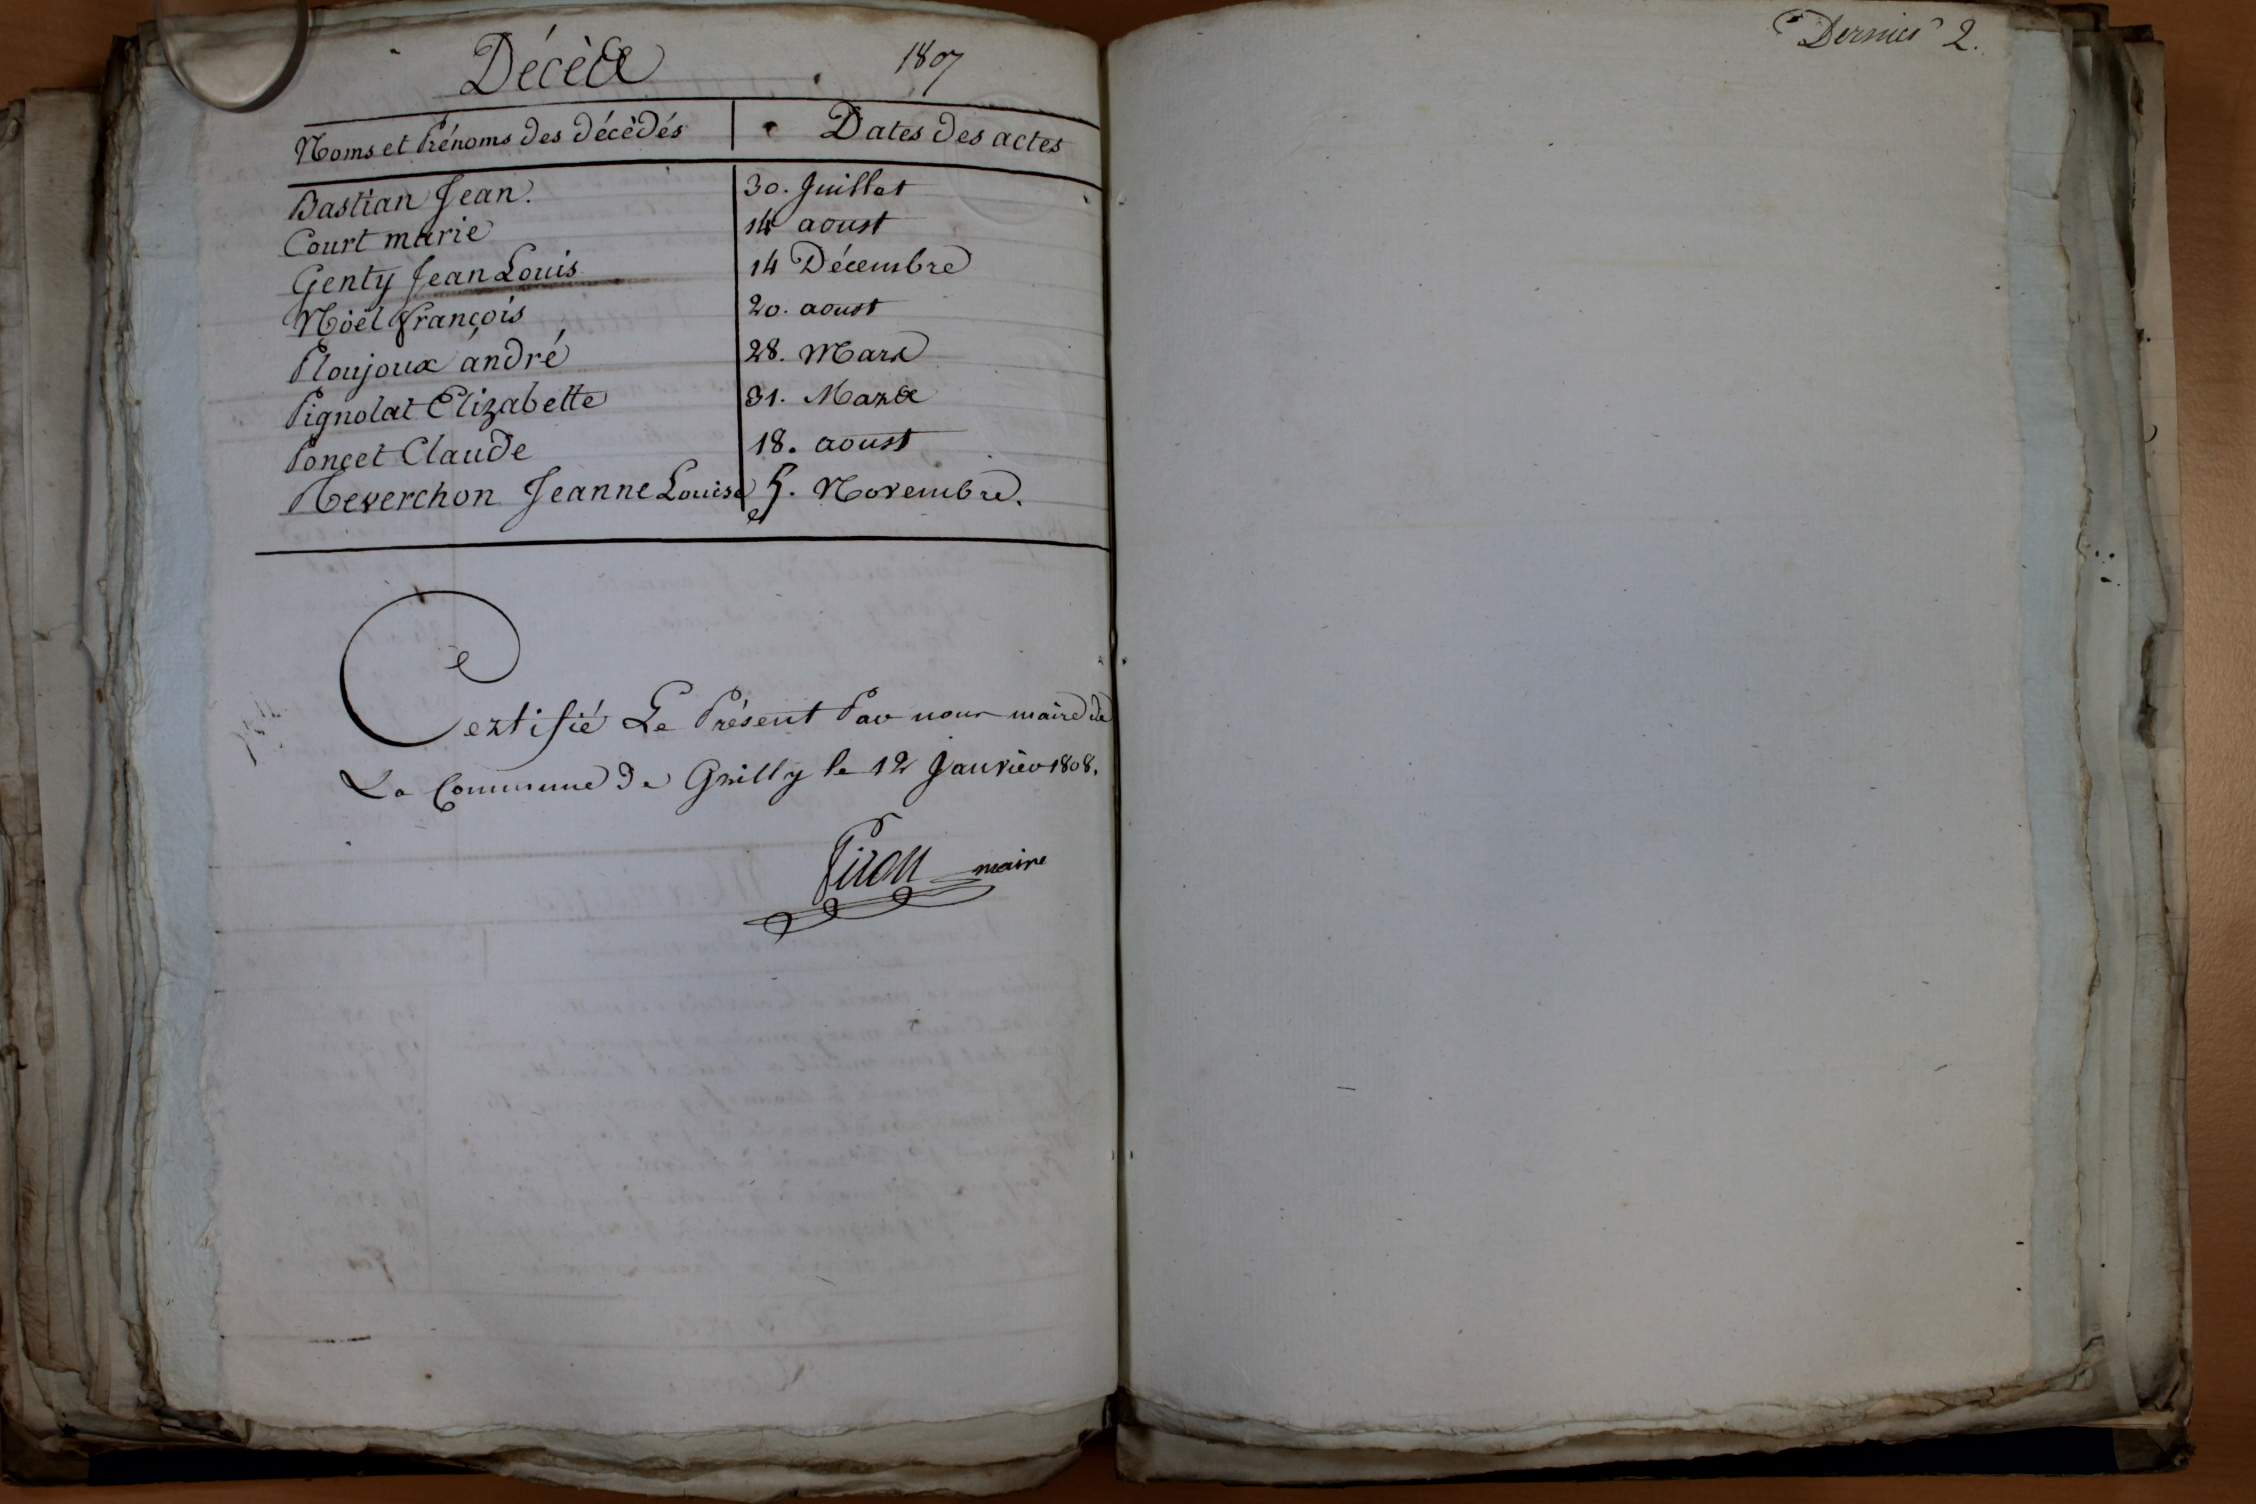 Décès 1807
Noms et Prénoms des décédés Dates des actes
Bastian Jean. 30. Juillet
Court marie 14 aoust
Genty Jean Louis 14 Décembre
Nöel François 20. aoust
Ploujoux andré 28. Mars
Pignolat Elizabette 31. Mars
Ponçet Claude 18. aoust
Reverchon Jeanne Louise 5. Novembre.
Certifié Le Présent Par nous maire de
La Commune de Grilly le 12 Janvier 1808.
Piron maire
Dernier 2.